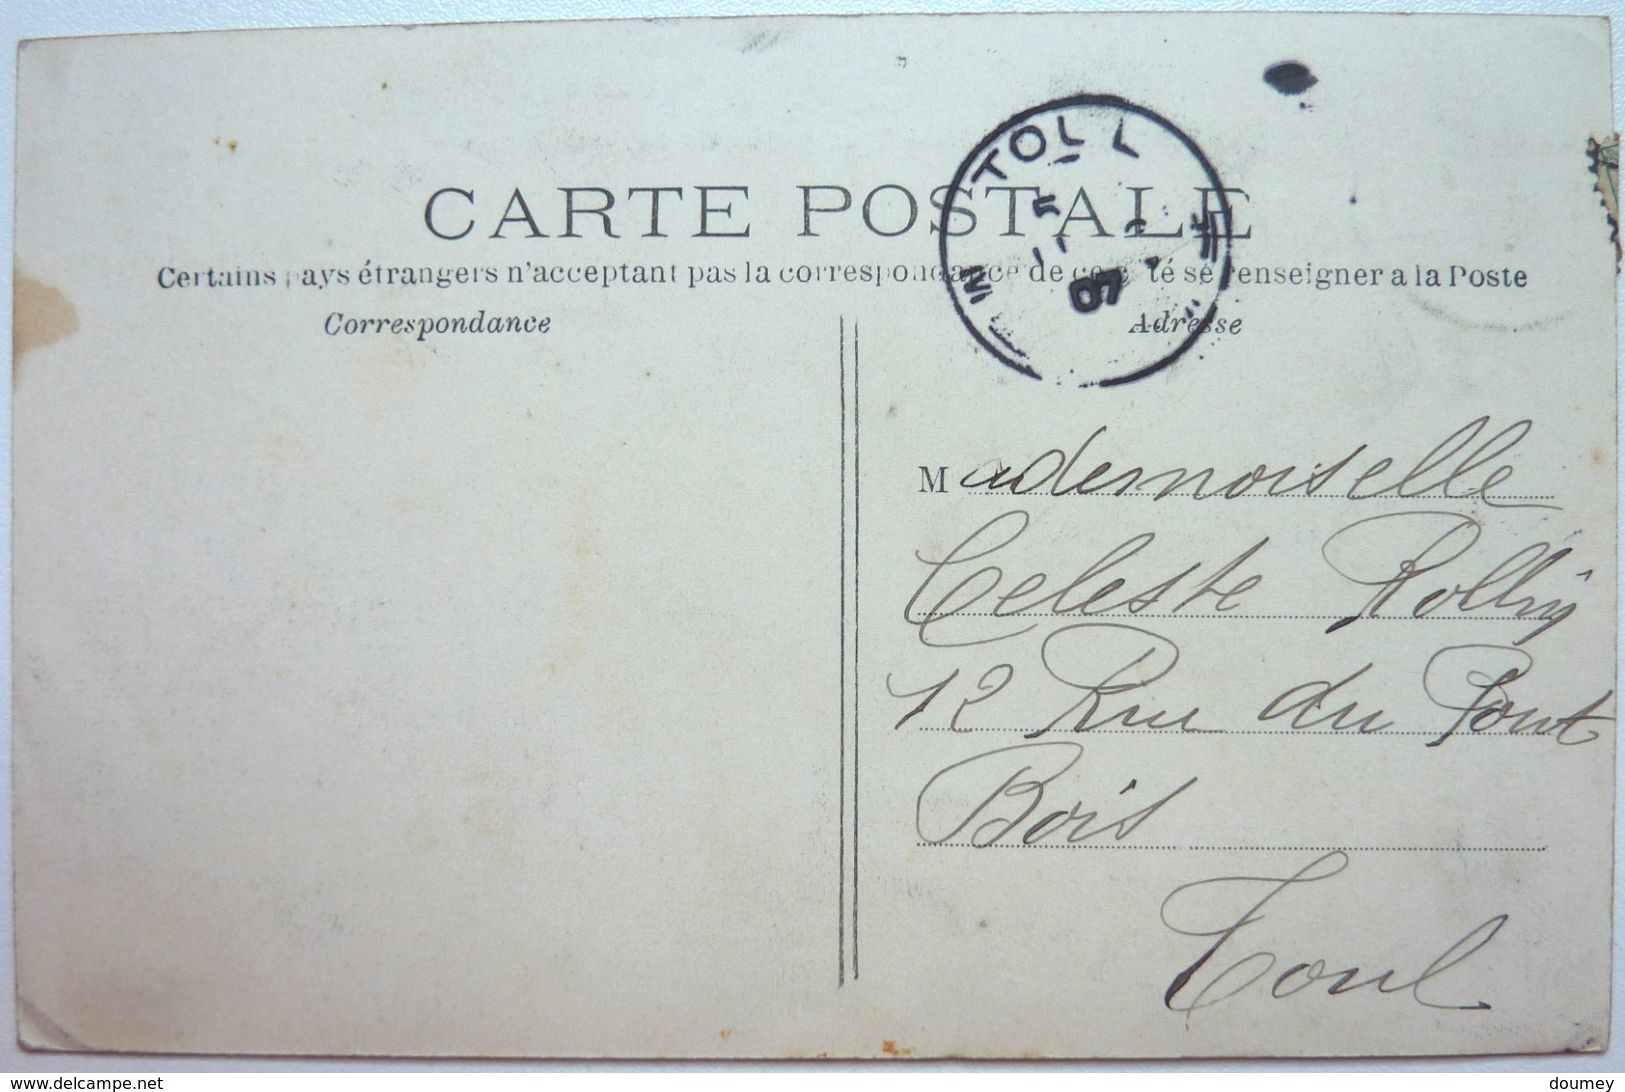 TOUL
07
CARTE POSTALE
Certains pays étrangers n'acceptant pas la correspondance de ce côté se renseigner a la Poste
Correspondance
Adresse
Mademoiselle
Celeste
12 Rue du Pont
Bois
Toul
www.delcampe.net
doumey